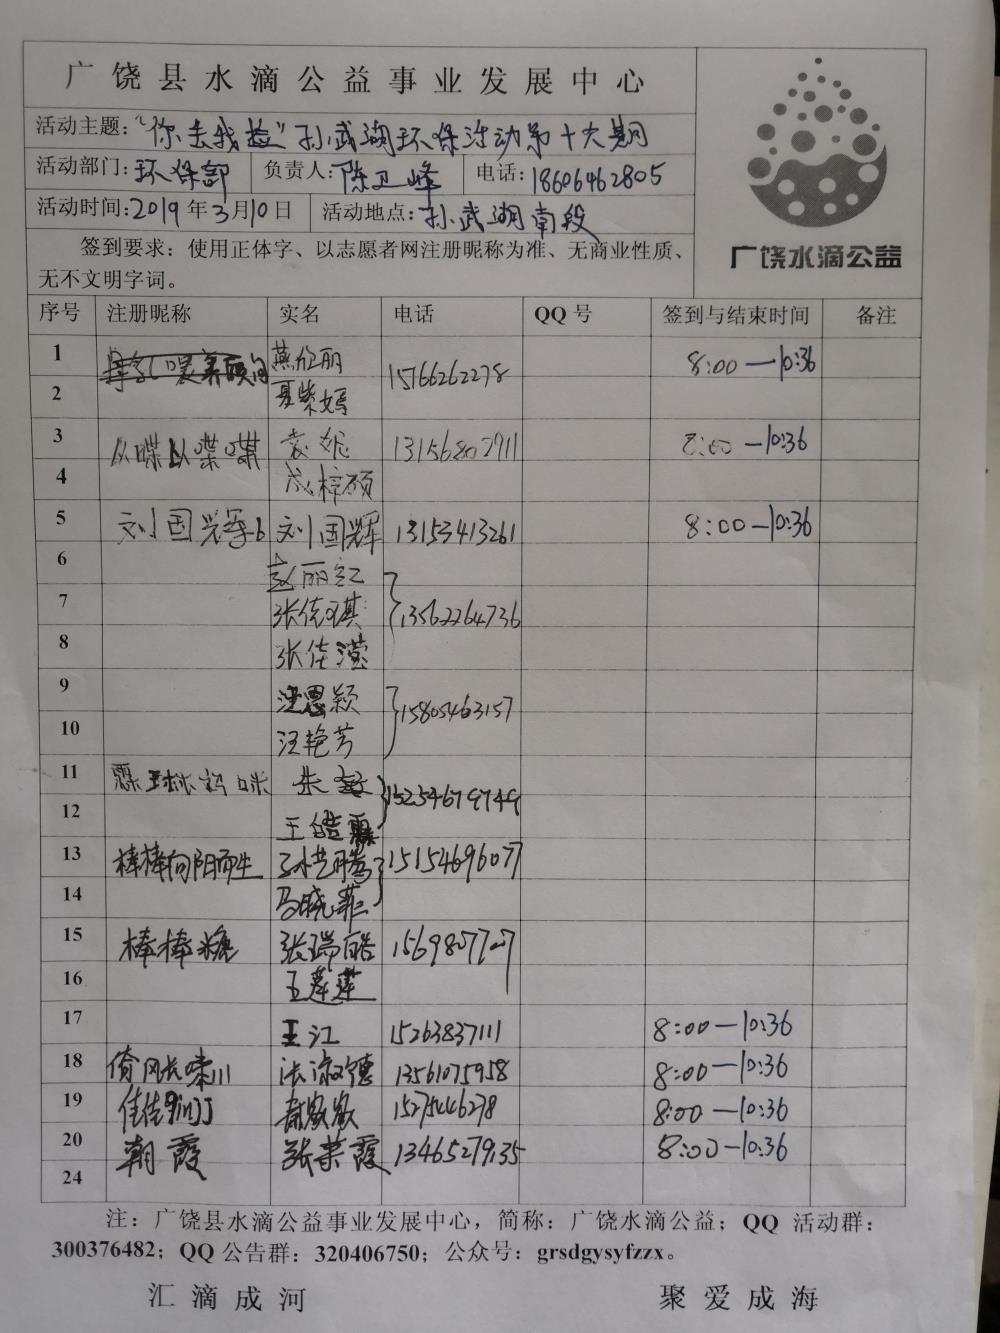 广饶县水滴公益事业发展中心
活动主题:"你丢我捡"孙武湖环保活动第十六期
活动部门:环保部 负责人:陈卫峰 电话:18606462805
活动时间:2019年3月10日 活动地点:孙武湖南段
签到要求:使用正体字、以志愿者网注册昵称为准、无商业性质、
无不文明字词。
广饶水滴公益
序号 注册昵称 实名 电话 QQ号 签到与结束时间 备注
1 15766262278 8:00—10:36
2
3 袁妮 13156802911 8:00—10:36
4 成梓硕
5 刘国辉b 刘国辉 13153413261 8:00—10:36
6 赵丽红
7 张佳琪 13562264736
8 张佳滢
9 汪思颖 15805463157
10 汪艳芳
11 霖球妈咪 朱 15254679749
12 王皓霖
13 棒棒向阳而生 腾 15154696077
14 马晓菲
15 棒棒糖 张瑞皓 1569807707
16 王莲莲
17 王江 15263837111 8:00—10:36
18 倚风长啸川 张淑德 13561075958 8:00—10:36
19 佳佳 15275446278 8:00—10:36
20 朝霞 张荣霞 13465279135 8:00—10:36
24
注:广饶县水滴公益事业发展中心,简称:广饶水滴公益;QQ 活动群:
300376482;QQ公告群:320406750;公众号:grsdgysyfzzx。
汇滴成河 聚爱成海